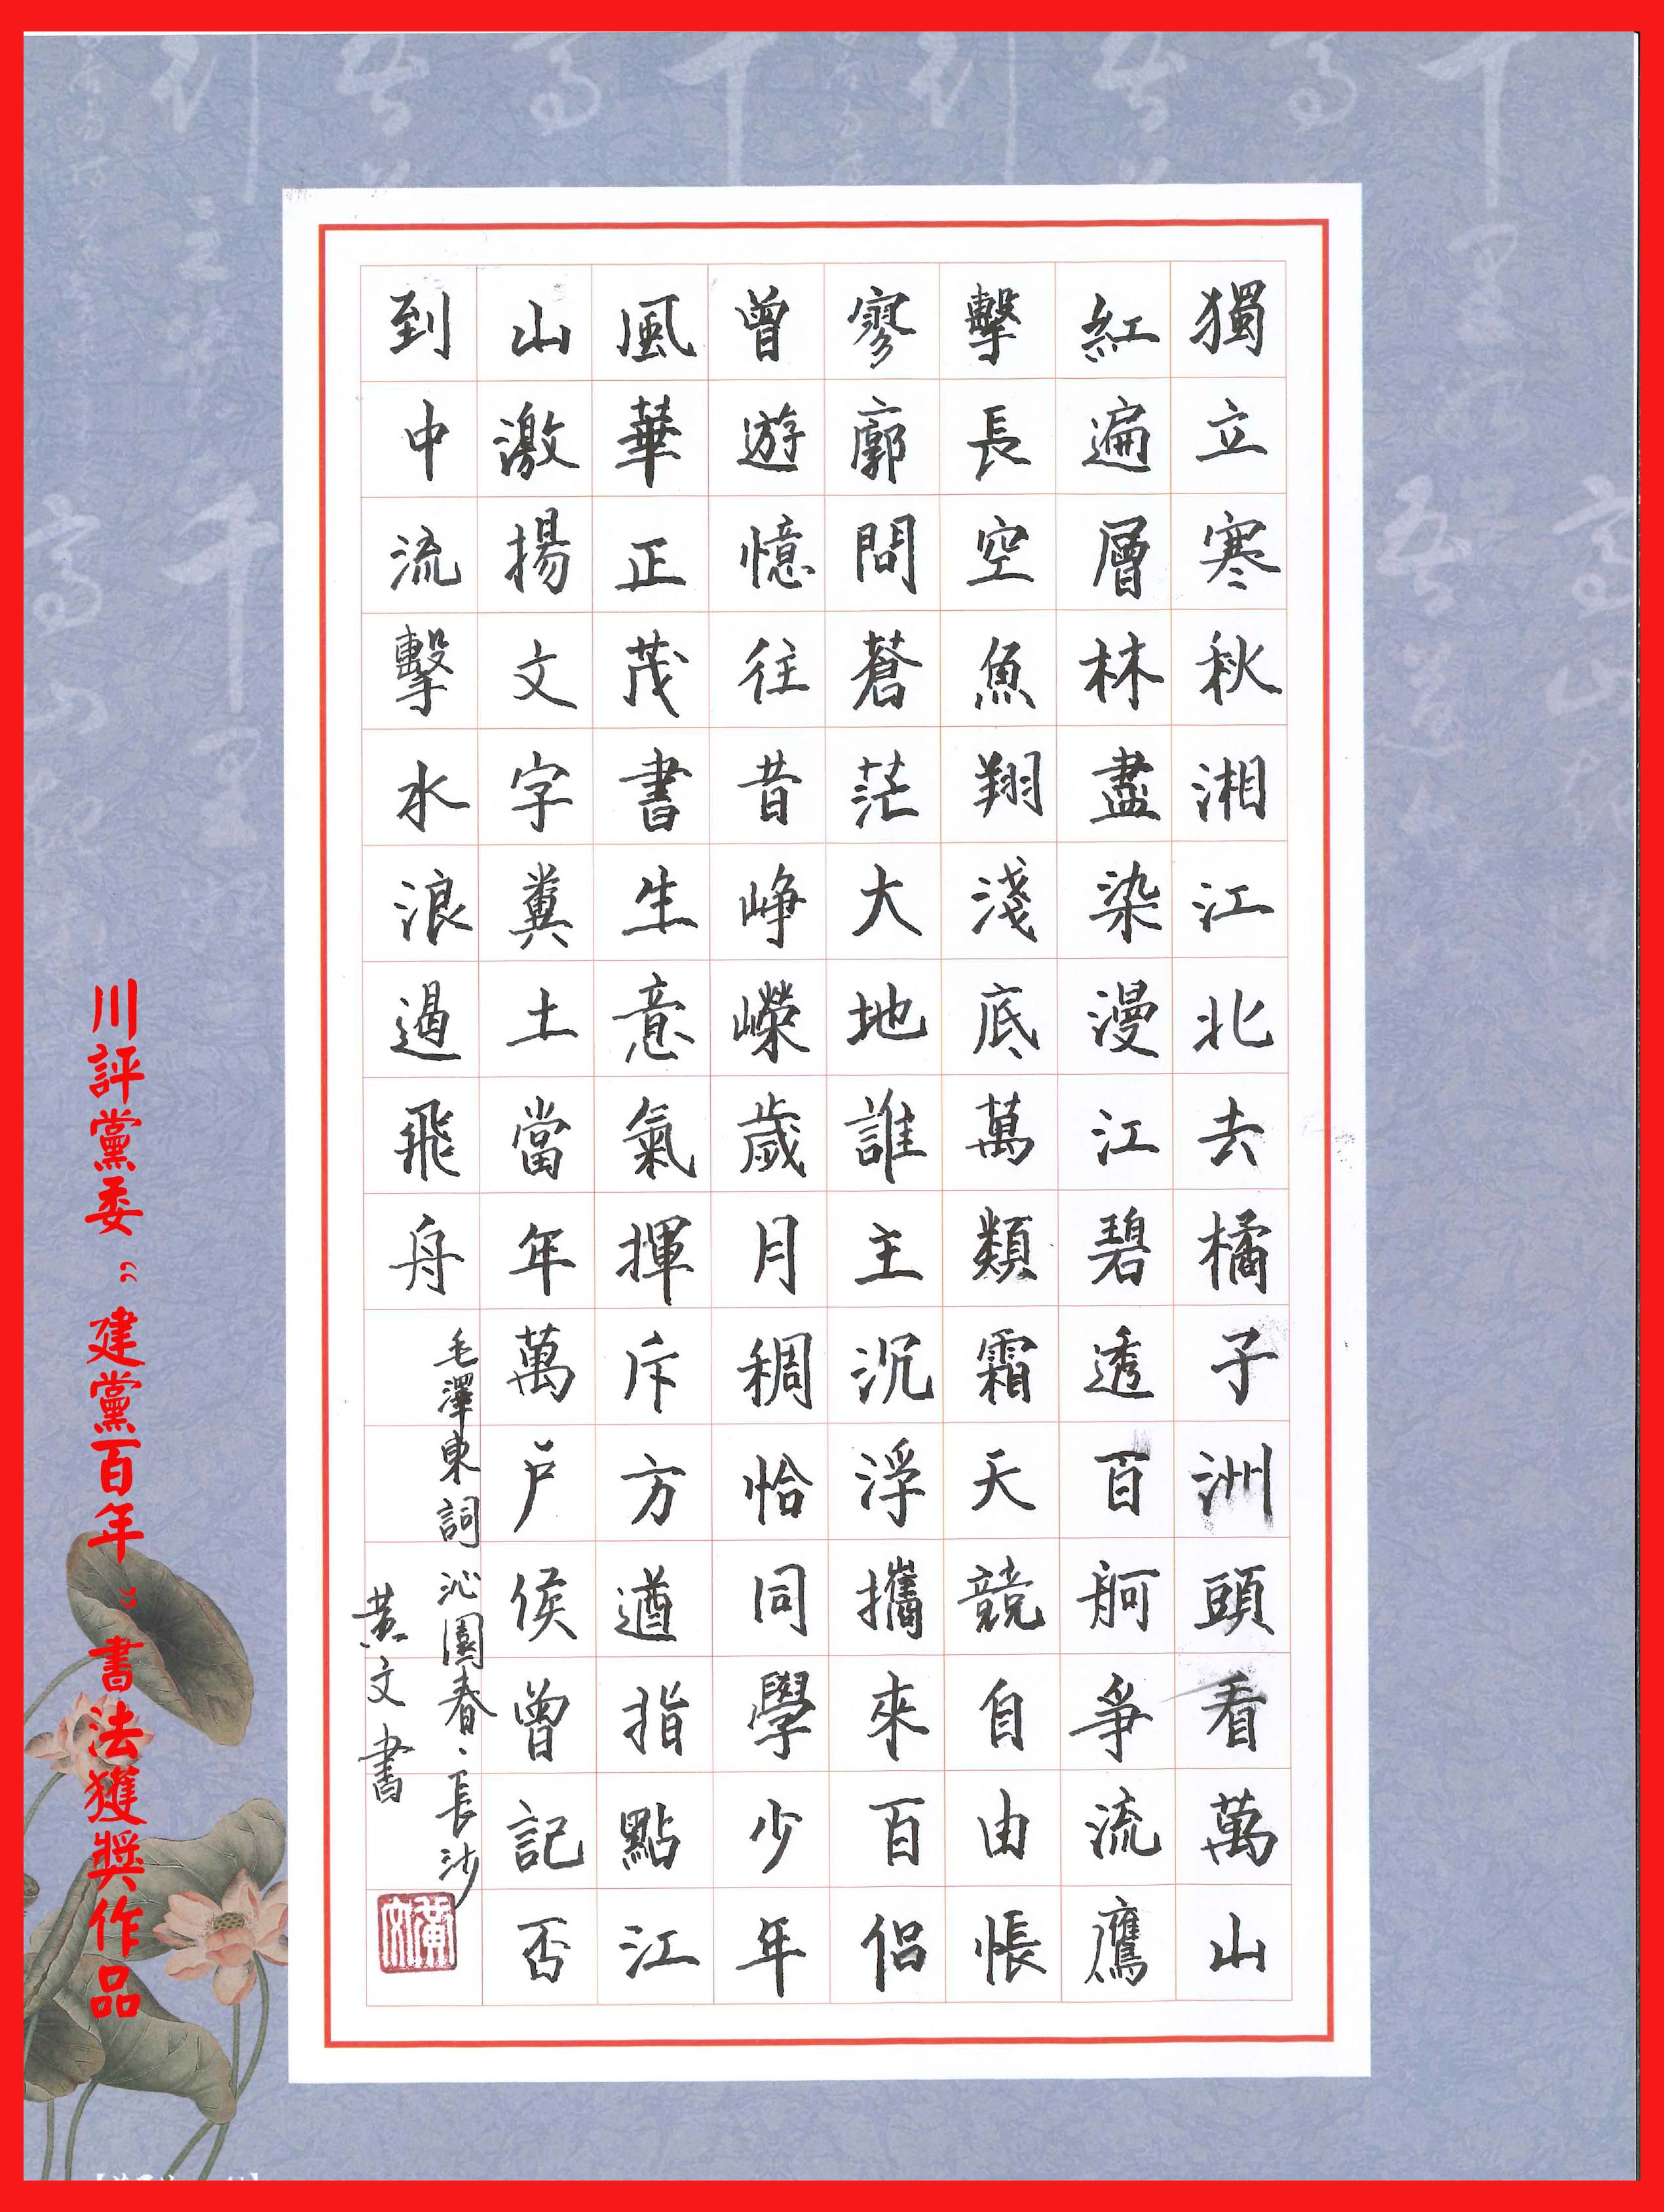 獨立寒秋湘江北去橘子洲頭看萬山
紅遍層林盡染漫江碧透百舸爭流鷹
擊長空魚翔淺底萬類霜天競自由悵
寥廓問蒼茫大地誰主沉浮攜來百侶
曾遊憶往昔崢嶸歲月稠恰同學少年
風華正茂書生意氣揮斥方遒指點江
山激揚文字糞土當年萬户侯曾記否
到中流擊水浪遏飛舟
毛澤東詞沁園春·長沙
黄文書
黄文
川評黨委“建黨百年”書法獲獎作品